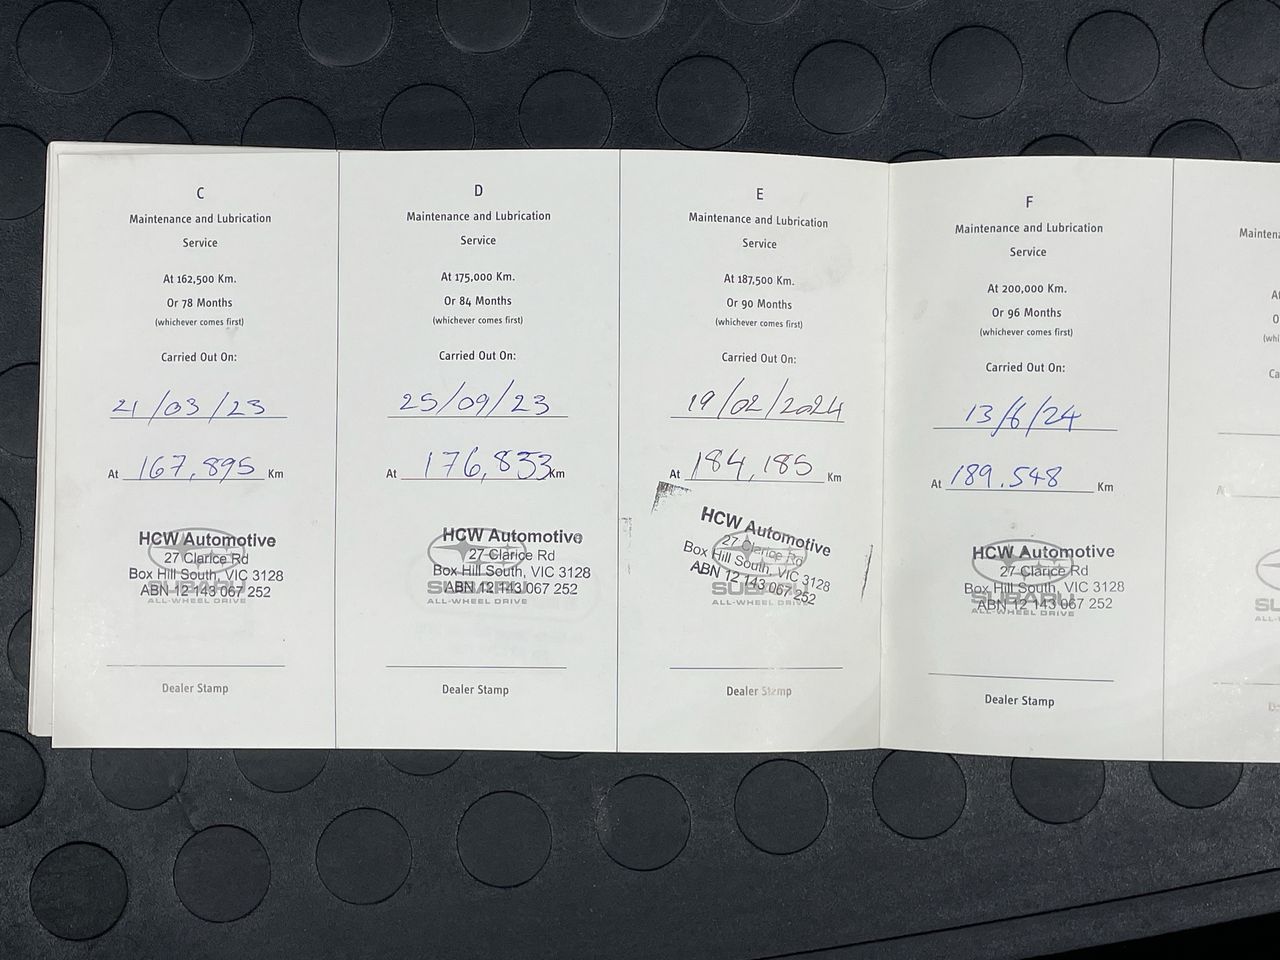 C
Maintenance and Lubrication
Service
At 162,500 Km.
Or 78 Months
(whichever comes first)
Carried Out On:
21/03/23
At 167,895 Km
HCW Automotive
27 Clarice Rd
Box Hill South, VIC 3128
ABN 12 143 067 252
SUBARU
ALL-WHEEL DRIVE
Dealer Stamp
D
Maintenance and Lubrication
Service
At 175,000 Km.
Or 84 Months
(whichever comes first)
Carried Out On:
25/09/23
At 176,833 Km
HCW Automotive
27 Clarice Rd
Box Hill South, VIC 3128
ABN 12 143 067 252
SUBARU
ALL-WHEEL DRIVE
Dealer Stamp
E
Maintenance and Lubrication
Service
At 187,500 Km.
Or 90 Months
(whichever comes first)
Carried Out On:
19/02/2024
At 184,185 Km
HCW Automotive
27 Clarice Rd
Box Hill South, VIC 3128
ABN 12 143 067 252
SUBARU
ALL-WHEEL DRIVE
Dealer Stamp
F
Maintenance and Lubrication
Service
At 200,000 Km.
Or 96 Months
(whichever comes first)
Carried Out On:
13/6/24
At 189.548 Km
HCW Automotive
27 Clarice Rd
Box Hill South, VIC 3128
ABN 12 143 067 252
SUBARU
ALL-WHEEL DRIVE
Dealer Stamp